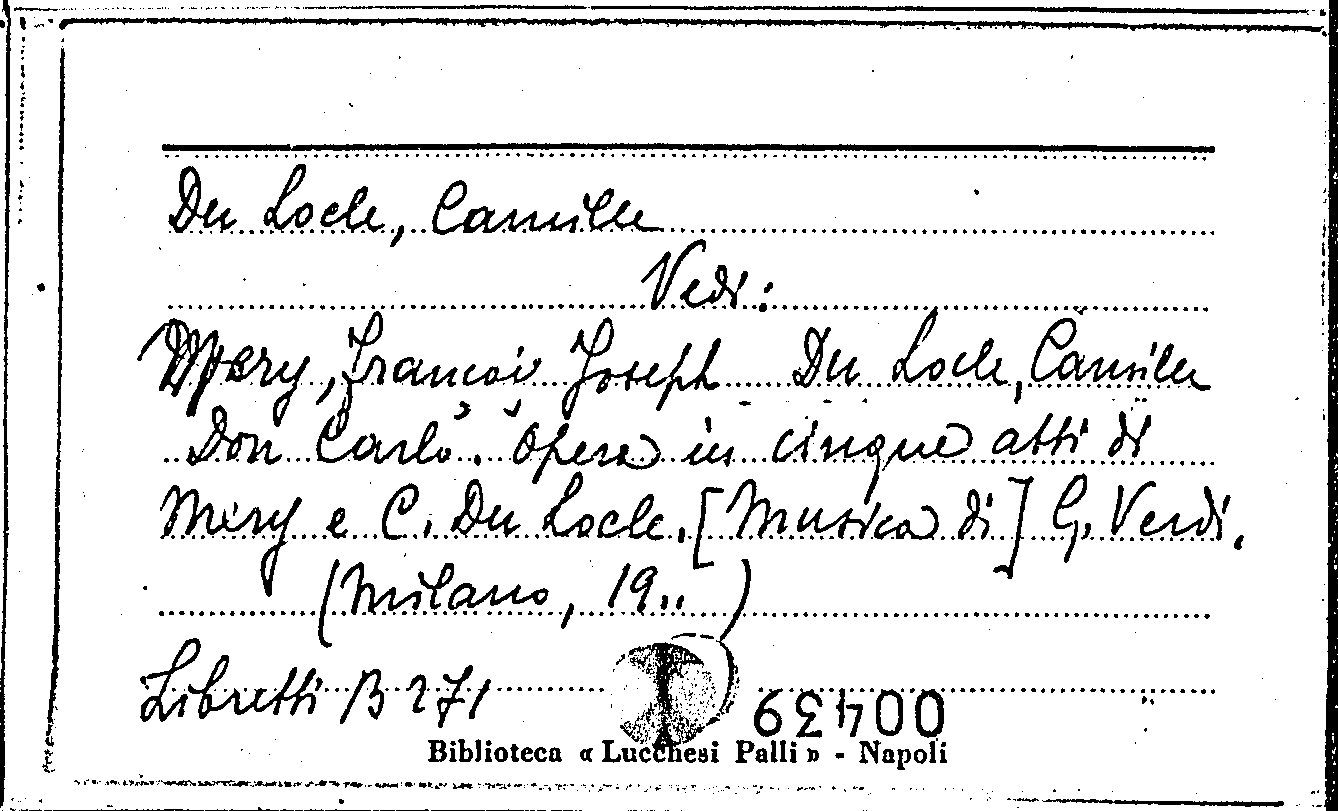 Du Locle, Camille
Vedi:
Mery, Francoi Joseph Du Locle, Camille
Don Carlo. Opera in cinque atti di
Mery e C. Du Locle. [Musica di] G. Verdi.
(Milano, 19..)
Libretti B 271
00439
Biblioteca « Lucchesi Palli » - Napoli